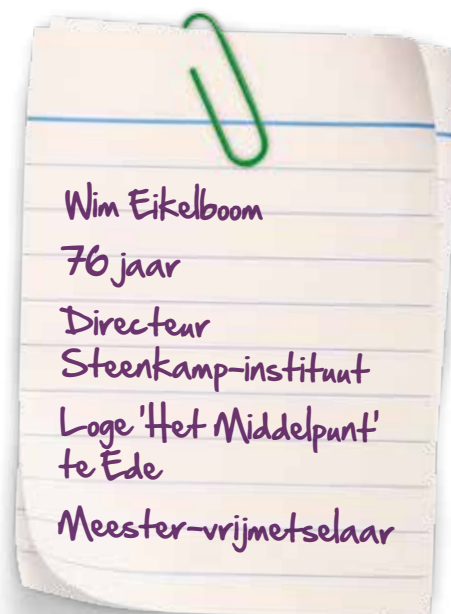 Wim Eikelboom
76 jaar
Directeur
Steenkamp-instituut
Loge 'Het Middelpunt'
te Ede
Meester-vrijmetselaar